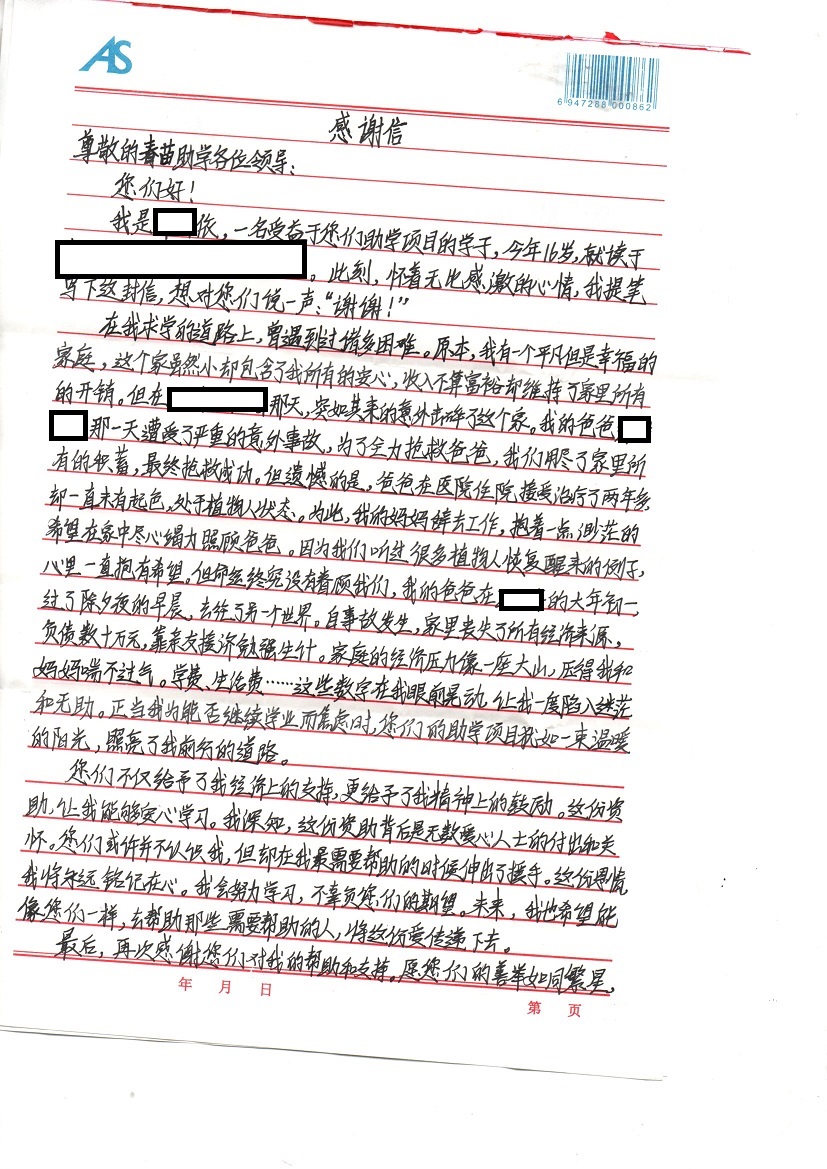 AS
6 947288 000862
感谢信
尊敬的春苗助学各位领导：
您们好！
我是 依，一名受益于您们助学项目的学子，今年16岁，就读于
。此刻，怀着无比感激的心情，我提笔
写下这封信，想对您们说一声：“谢谢！”
在我求学的道路上，曾遇到过诸多困难。原本，我有一个平凡但是幸福的
家庭，这个家虽然小却包含了我所有的安心，收入不算富裕却维持了家里所有
的开销。但在 那天，突如其来的意外击碎了这个家。我的爸爸
那一天遭受了严重的意外事故，为了全力抢救爸爸，我们用尽了家里所
有的积蓄，最终抢救成功。但遗憾的是，爸爸在医院住院接受治疗了两年多，
却一直未有起色，处于植物人状态。为此，我的妈妈辞去工作，抱着一点渺茫的
希望在家中尽心竭力照顾爸爸。因为我们听过很多植物人恢复醒来的例子，
心里一直抱有希望。但命运终究没有眷顾我们，我的爸爸在 的大年初一，
过了除夕夜的早晨，去往了另一个世界。自事故发生，家里丧失了所有经济来源，
负债数十万元，靠亲友接济勉强生计。家庭的经济压力像一座大山，压得我和
妈妈喘不过气。学费、生活费……这些数字在我眼前晃动，让我一度陷入迷茫
和无助。正当我为能否继续学业而焦虑时，您们的助学项目犹如一束温暖
的阳光，照亮了我前行的道路。
您们不仅给予了我经济上的支持，更给予了我精神上的鼓励。这份资
助，让我能够安心学习。我深知，这份资助背后是无数爱心人士的付出和关
怀。您们或许并不认识我，但却在我最需要帮助的时候伸出了援手。这份恩情，
我将永远铭记在心。我会努力学习，不辜负您们的期望。未来，我也希望能
像您们一样，去帮助那些需要帮助的人，将这份爱传递下去。
最后，再次感谢您们对我的帮助和支持。愿您们的善举如同繁星，
年 月 日
第 页